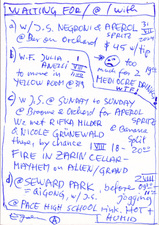 WAITING FOR / @ / with
a) w/ J.S. NEGRONI & APEROL SPRITZ 31 VII
@ Bar on Orchard $45 w/tip
b) W.F. JULIA, ANEZI to move in YELLOW ROOM @
too much for 2 MEDIOCRE
c) w J.S. @ SUNDAY to SUNDAY
@ Broome & Orchard for APEROL SPRITZ
We met RIFKA MILDER
& NICOLE GRÜNEWALD @
there, by chance 1 VIII 18-20:00
FIRE IN ZARIN CELLAR -
MAYHEM on ALIEN/GRAND
d) @ SEWARD PARK, before
QIGONG, w/ J.S. jogging
@ PACE HIGH SCHOOL HOT +
HUMID